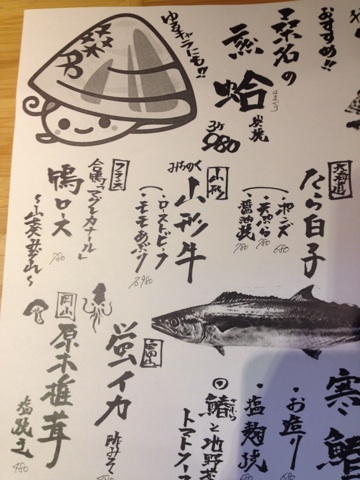 おすすめ!!
桑名の
蛤
はまぐり
炭焼
3ヶ
980
ゆるキャラにも!!
北海道
たら白子
・ポン酢
・天ぷら
・醤油焼
山形
みちのく
山形牛
・ローストビーフ
・モモあぶり
フランス
合鴨
鴨ロース
〜山葵みぞれ〜
780
寒鰆
・お造り
・塩麹焼
・鰆と地野菜
トマトソース
富山
蛍イカ
酢みそ
岡山
原木椎茸
塩焼き